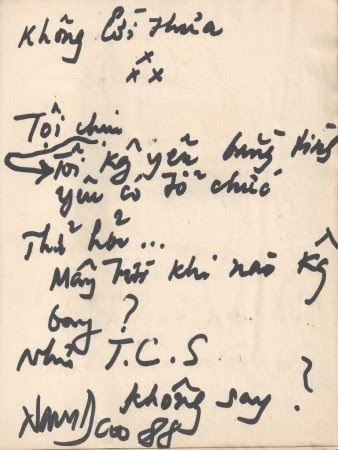 Không lời thừa
x
x x
Tội chưa
Tôi kg yêu bằng tiếng
yêu có tổ chức
Thử hỏi ...
Mây trời khi nào kg
bay ?
Như T.C.S
không say ?
88